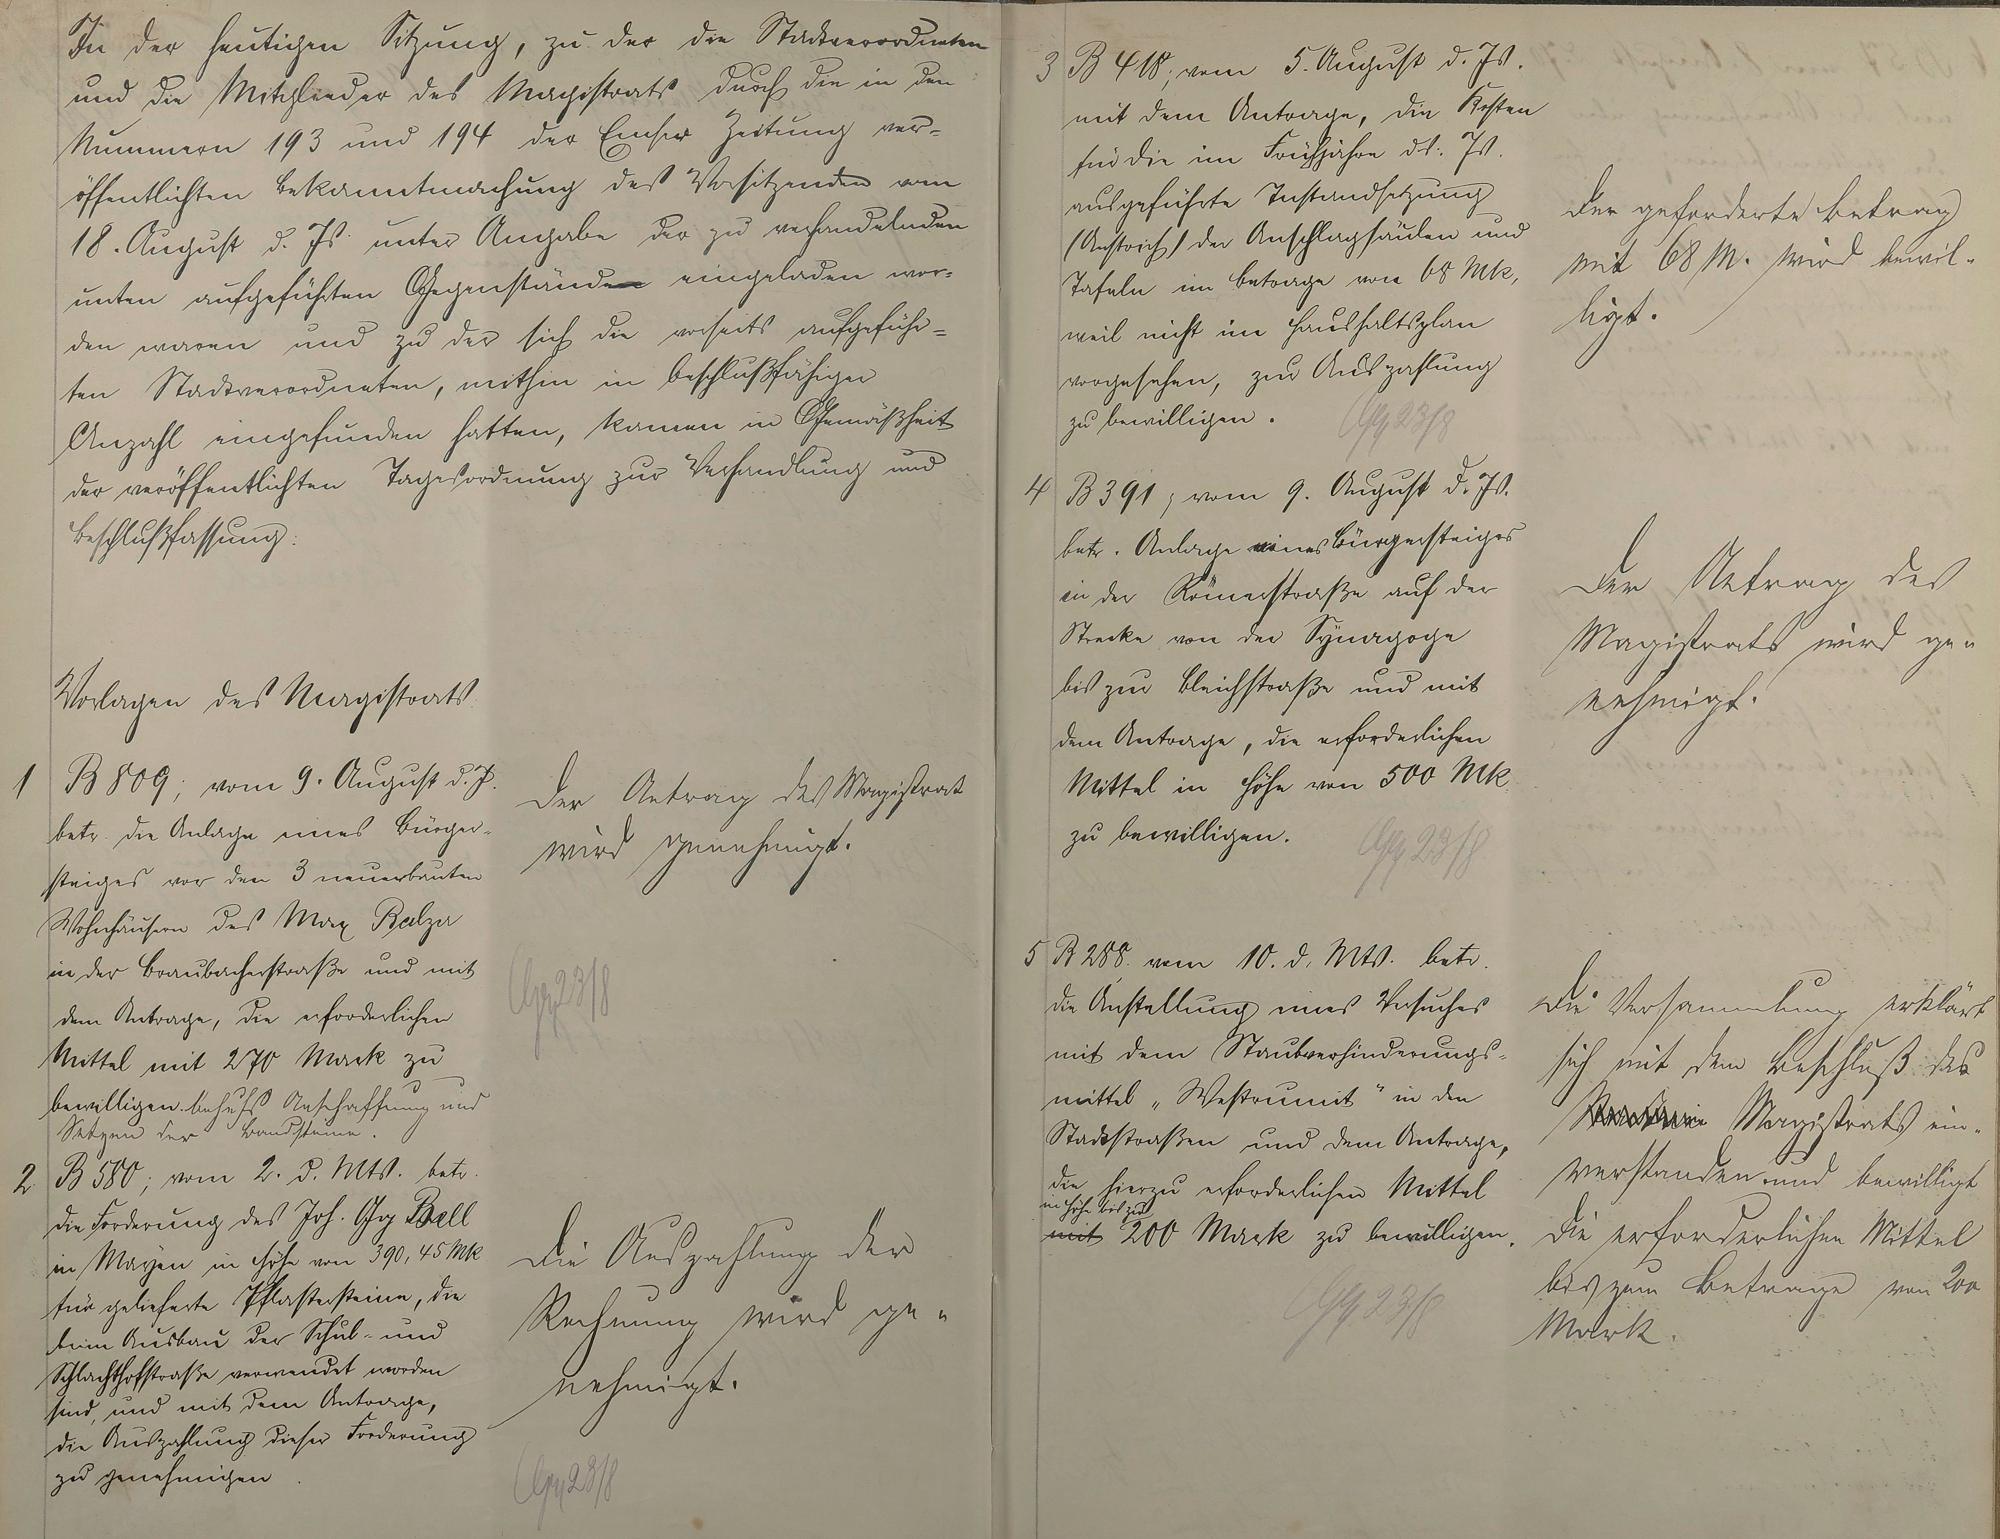 In der heutigen Sitzung, zu der die Stadtverordneten
und die Mitglieder des Magistrats durch die in den
Nummern 193 und 194 der Emser Zeitung ver-
öffentlichten Bekanntmachung des Vorsitzenden vom
18. August d. Js. unter Angabe der zu verhandelnden
unten aufgeführten Gegenstände eingeladen wor-
den waren und zu der sich die vorseits aufgeführ-
ten Stadtverordneten, mithin in beschlußfähiger
Anzahl eingefunden hatten, kamen in Gemäßheit
der veröffentlichten Tagesordnung zur Verhandlung und
Beschlußfassung:
Vorlagen des Magistrats.
1 B 809; vom 9. August d. J.
betr. die Anlage eines Bürger-
steiges vor den 3 neuerbauten
Wohnhäusern des Max Balzer
in der Braubacherstraße und mit
dem Antrage, die erforderlichen
Mittel mit 270 Mark zu
bewilligen behufs Anschaffung und
Setzen der Bandsteine.
Der Antrag des Magistrat
wird genehmigt.
23/8
2 B 580; vom 2. d. Mts. betr.
die Forderung des Joh. Gg Bell
in Mayen in Höhe von 390,45 Mk
für gelieferte Pflastersteine, die
beim Ausbau der Schul- und
Schlachthofstraße verwendet worden
sind, und mit dem Antrage,
die Auszahlung dieser Forderung
zu genehmigen.
Die Auszahlung der
Rechnung wird ge-
nehmigt.
23/8
3 B 418; vom 5. August d. Js.
mit dem Antrage, die Kosten
für die im Frühjahre ds. Js.
ausgeführte Instandsetzung
(Anstrich) der Anschlagsäulen und
Tafeln im Betrage von 68 Mk,
weil nicht im Haushaltsplan
vorgesehen, zur Auszahlung
zu bewilligen.
23/8
Der geforderte Betrag
mit 68 M. wird bewil-
ligt.
4 B 391; vom 9. August d. Js.
betr. Anlage eines Bürgersteiges
in der Römerstraße auf der
Strecke von der Synagoge
bis zur Bleichstraße und mit
dem Antrage, die erforderlichen
Mittel in Höhe von 500 Mk
zu bewilligen.
23/8
Der Antrag des
Magistrats wird ge-
nehmigt.
5 B 288. vom 10. d. Mts. betr.
die Anstellung eines Versuches
mit dem Staubverhinderungs-
mittel „Westrumit“ in den
Stadtstraßen und dem Antrage,
die hierzu erforderlichen Mittel
in Höhe bis zu
mit 200 Mark zu bewilligen.
23/8
Die Versammlung erklärt
sich mit dem Beschluß des
Magistrats ein-
verstanden und bewilligt
die erforderlichen Mittel
bis zum Betrage von 200
Mark.